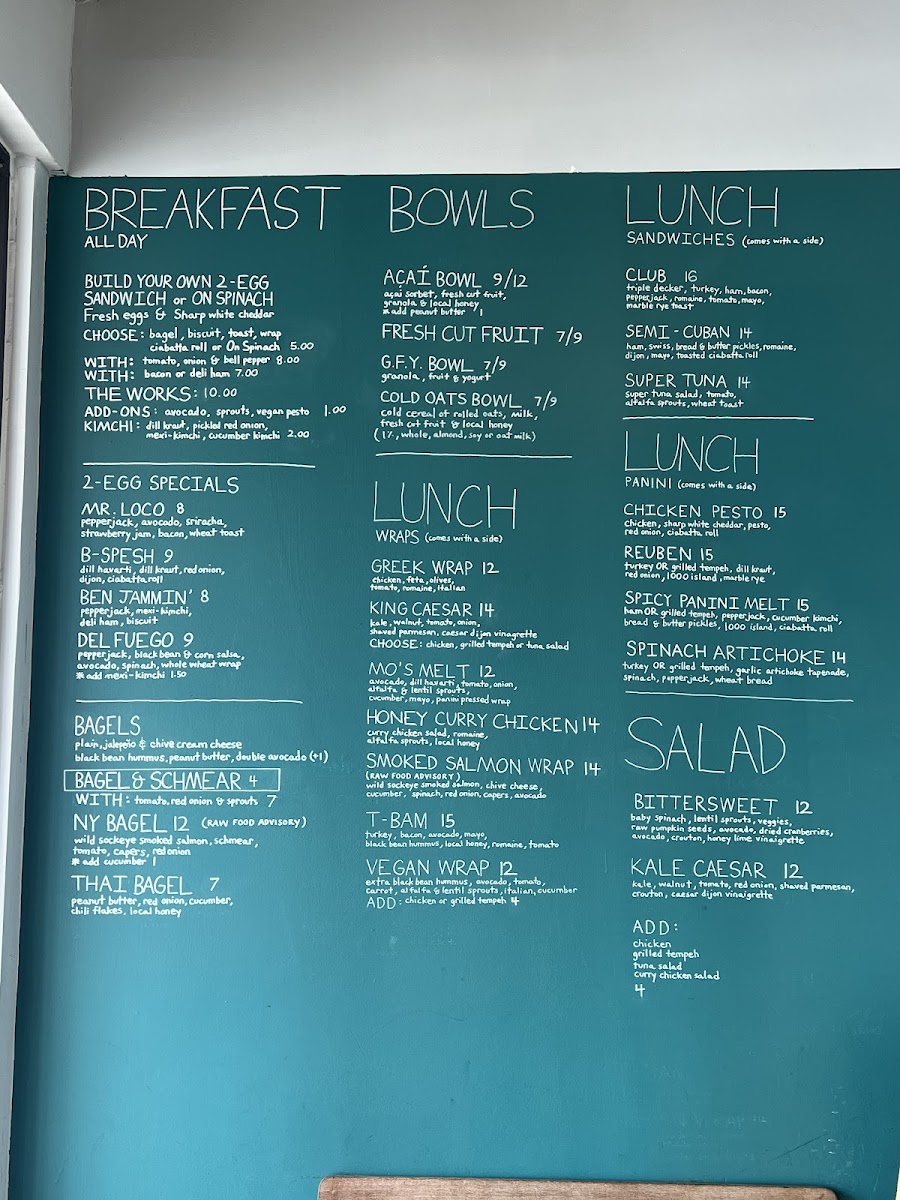 BREAKFAST
ALL DAY
BUILD YOUR OWN 2-EGG
SANDWICH or ON SPINACH
Fresh eggs & Sharp white cheddar
CHOOSE: bagel, biscuit, toast, wrap
ciabatta roll or On Spinach 5.00
WITH: tomato, onion & bell pepper 8.00
WITH: bacon or deli ham 7.00
THE WORKS: 10.00
ADD-ONS: avocado, sprouts, vegan pesto 1.00
KIMCHI: dill kraut, pickled red onion,
mexi-kimchi, cucumber kimchi 2.00
2-EGG SPECIALS
MR. LOCO 8
pepperjack, avocado, sriracha,
strawberry jam, bacon, wheat toast
B-SPESH 9
dill havarti, dill kraut, red onion,
dijon, ciabatta roll
BEN JAMMIN' 8
pepperjack, mexi-kimchi,
deli ham, biscuit
DEL FUEGO 9
pepperjack, black bean & corn salsa,
avocado, spinach, whole wheat wrap
* add mexi-kimchi 1.50
BAGELS
plain, jalepeño & chive cream cheese
black bean hummus, peanut butter, double avocado (+1)
BAGEL & SCHMEAR 4
WITH: tomato, red onion & sprouts 7
NY BAGEL 12 (RAW FOOD ADVISORY)
wild sockeye smoked salmon, schmear,
tomato, capers, red onion
* add cucumber 1
THAI BAGEL 7
peanut butter, red onion, cucumber,
chili flakes, local honey
BOWLS
AÇAÍ BOWL 9/12
açai sorbet, fresh cut fruit,
granola & local honey
* add peanut butter 1
FRESH CUT FRUIT 7/9
G.F.Y. BOWL 7/9
granola, fruit & yogurt
COLD OATS BOWL 7/9
cold cereal of rolled oats, milk,
fresh cut fruit & local honey
(1%, whole, almond, soy or oat milk)
LUNCH
WRAPS (comes with a side)
GREEK WRAP 12
chicken, feta, olives,
tomato, romaine, italian
KING CAESAR 14
kale, walnut, tomato, onion,
shaved parmesan, caesar dijon vinagrette
CHOOSE: chicken, grilled tempeh or tuna salad
MO'S MELT 12
avocado, dill havarti, tomato, onion,
alfalfa & lentil sprouts,
cucumber, mayo, panini pressed wrap
HONEY CURRY CHICKEN 14
curry chicken salad, romaine,
alfalfa sprouts, local honey
SMOKED SALMON WRAP 14
(RAW FOOD ADVISORY)
wild sockeye smoked salmon, chive cheese,
cucumber, spinach, red onion, capers, avocado
T-BAM 15
turkey, bacon, avocado, mayo,
black bean hummus, local honey, romaine, tomato
VEGAN WRAP 12
extra black bean hummus, avocado, tomato,
carrot, alfalfa & lentil sprouts, italian, cucumber
ADD: chicken or grilled tempeh 4
LUNCH
SANDWICHES (comes with a side)
CLUB 16
triple decker, turkey, ham, bacon,
pepperjack, romaine, tomato, mayo,
marble rye toast
SEMI-CUBAN 14
ham, swiss, bread & butter pickles, romaine,
dijon, mayo, toasted ciabatta roll
SUPER TUNA 14
super tuna salad, tomato,
alfalfa sprouts, wheat toast
LUNCH
PANINI (comes with a side)
CHICKEN PESTO 15
chicken, sharp white cheddar, pesto,
red onion, ciabatta roll
REUBEN 15
turkey OR grilled tempeh, dill kraut,
red onion, 1000 island, marble rye
SPICY PANINI MELT 15
ham OR grilled tempeh, pepperjack, cucumber kimchi,
bread & butter pickles, 1000 island, ciabatta roll
SPINACH ARTICHOKE 14
turkey OR grilled tempeh, garlic artichoke tapenade,
spinach, pepperjack, wheat bread
SALAD
BITTERSWEET 12
baby spinach, lentil sprouts, veggies,
raw pumpkin seeds, avocado, dried cranberries,
avocado, crouton, honey lime vinaigrette
KALE CAESAR 12
kale, walnut, tomato, red onion, shaved parmesan,
crouton, caesar dijon vinaigrette
ADD:
chicken
grilled tempeh
tuna salad
curry chicken salad
4